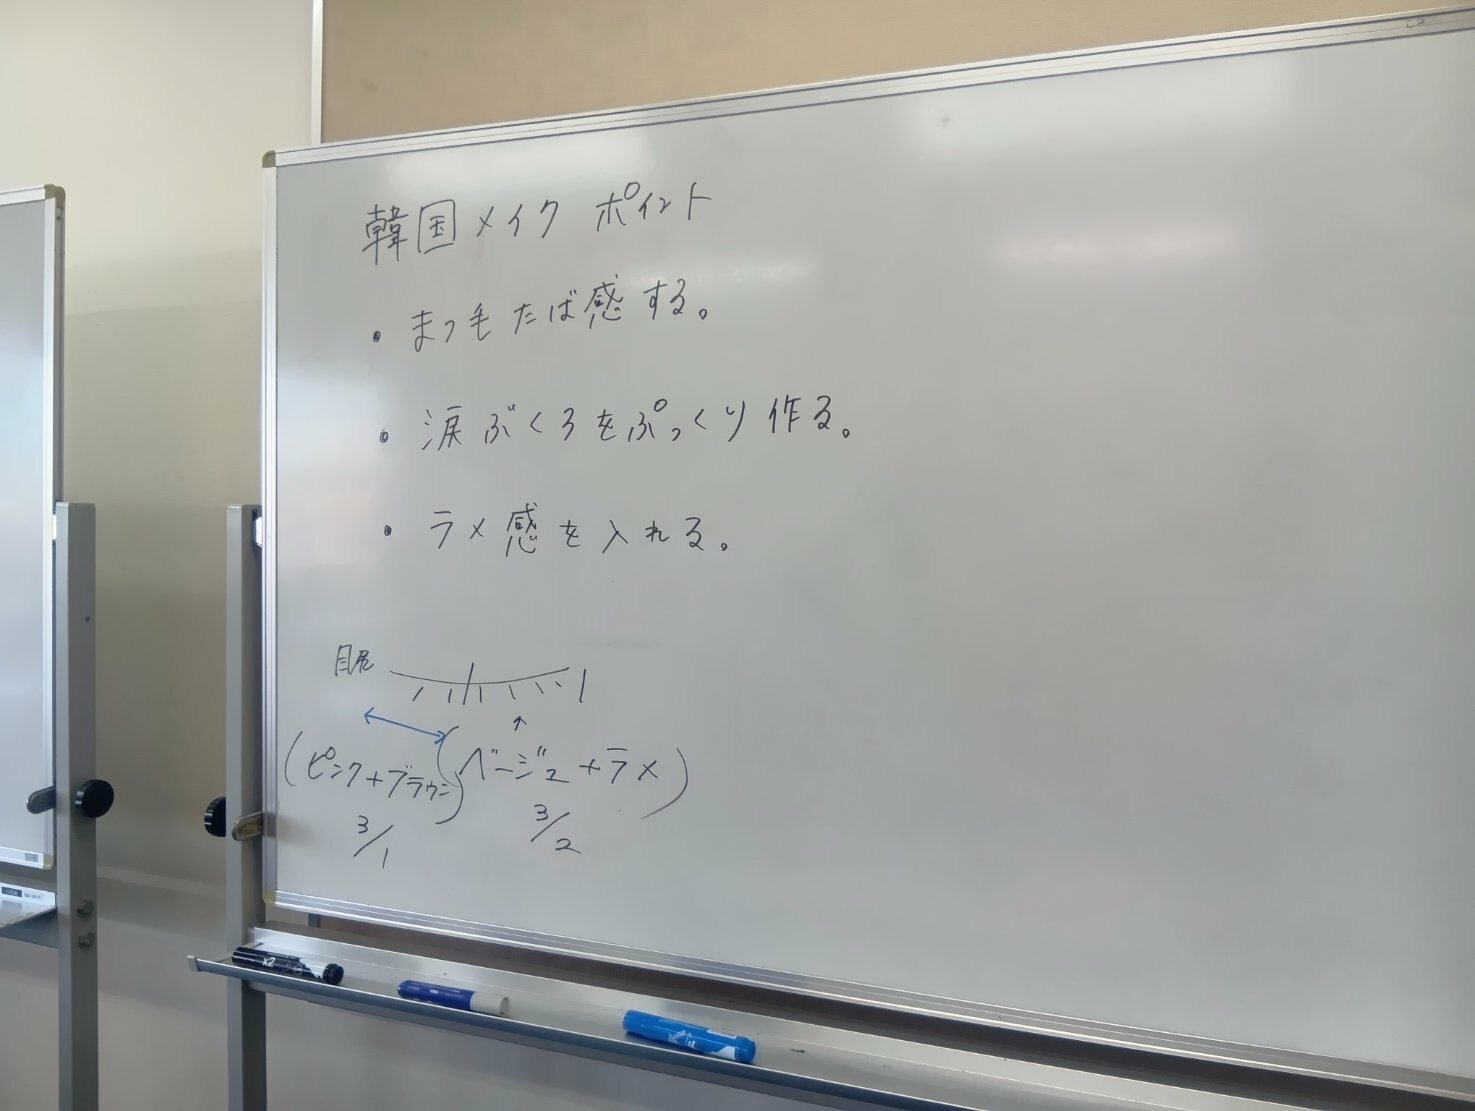 韓国メイク ポイント
・まつ毛たば感する。
・涙ぶくろをぷっくり作る。
・ラメ感を入れる。
目尻
(ピンク+ブラウン) (ベージュ+ラメ)
3/1 3/2
x2